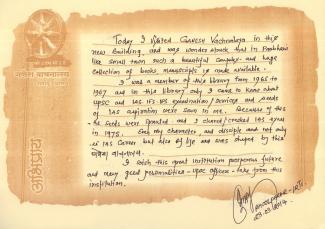 गणेश वाचनालय
अभिप्राय
Today I visited Ganesh Vachnalaya in this
new Building, and was wonder struck that in Parbhani
like small town such a beautiful complex and huge
collection of books manuscripts is made available.
I was a member of this library from 1965 to
1967 and in this library only I came to know about
UPSC and IAS IFS IPS examination / services and seeds
of IAS aspiration were sown in me. Because of this
the seeds were sprouted and I cleared/cracked IAS exam
in 1975. Each my character, and disciple and not only
IAS career but also of life and was shaped by this
गणेश वाचनालय.
I wish this great institution prosperous future
and many good personalities - UPSC officers - take from this
institution.